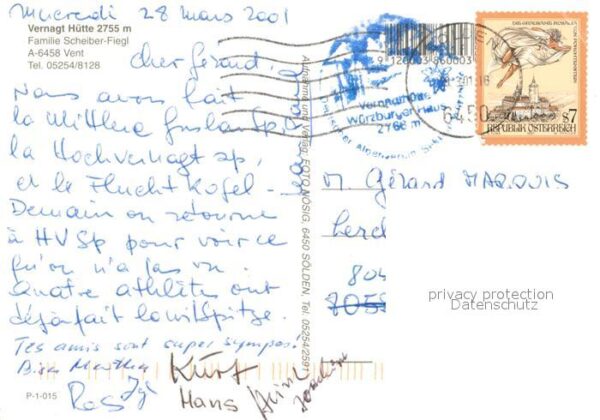 Mercredi 28 Mars 2001
Vernagt Hütte 2755 m
Familie Scheiber-Fiegl
A-6458 Vent
Tel. 05254/8128
cher Gérard,
Nous avons fait
la Mittlere Guslarspitze
la Hochvernagt sp,
et le Fluchtkogel -
Demain on retourne
à HVSp pour voir ce
qu'on n'a pas vu.
Quatre athlètes ont
déjà fait la Wildspitze.
Tes amis sont super sympas!
Bien
Kurt
Hans
P-1-015
Aufnahme und Verlag: FOTO NÖSIG, 6450 SÖLDEN, Tel. 05254/2591
9 126003 860003
Vernagthütte
Würzburger Haus
2766 m
6450
DIE
REPUBLIK ÖSTERREICH
S7
M. Gérard MARQUIS
804
8055
privacy protection
Datenschutz